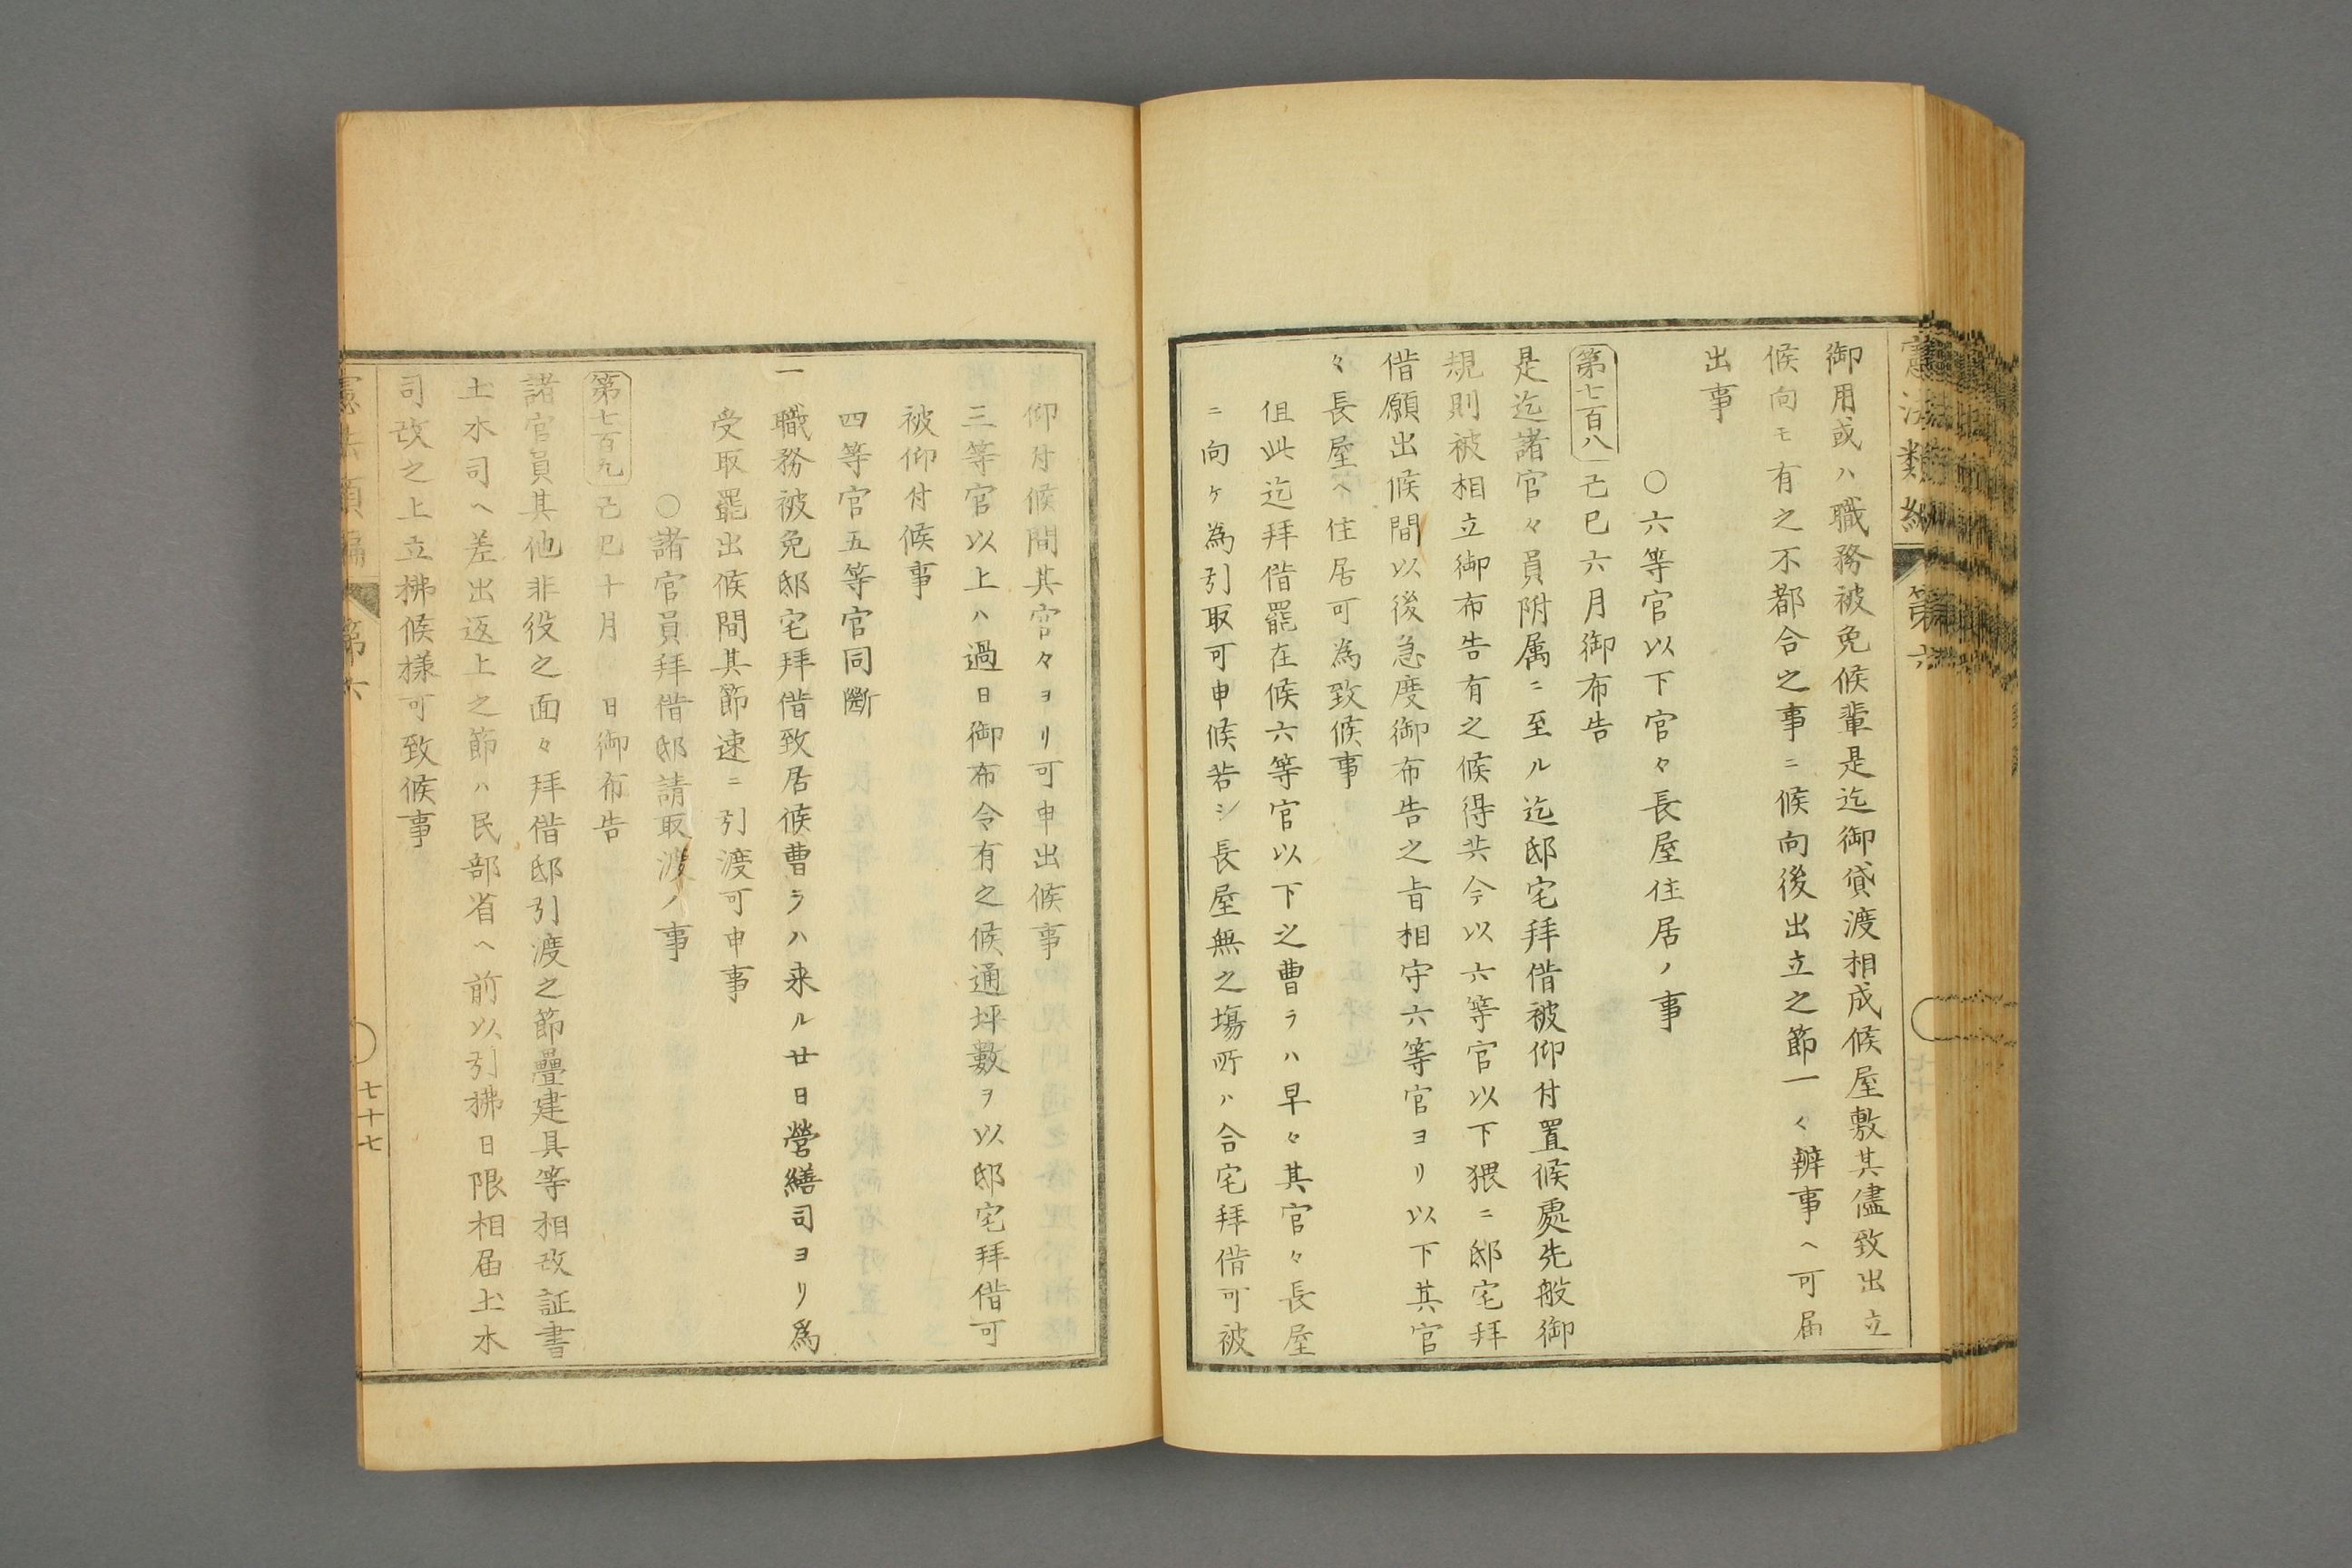 御用或ハ職務被免候輩是迄御貸渡相成候屋敷其儘致出立
候向モ有之不都合之事ニ候向後出立之節一々辨事ヘ可届
出事
〇六等官以下官々長屋住居ノ事
第七百八 己巳六月御布告
是迄諸官々員附属ニ至ル迄邸宅拜借被仰付置候處先般御
規則被相立御布告有之候得共今以六等官以下猥ニ邸宅拜
借願出候間以後急度御布告之旨相守六等官ヨリ以下其官
々長屋ヘ住居可為致候事
但此迄拜借罷在候六等官以下之曹ラハ早々其官々長屋
ニ向ケ為引取可申候若シ長屋無之塲所ハ合宅拜借可被
仰付候間其官々ヨリ可申出候事
三等官以上ハ過日御布令有之候通坪數ヲ以邸宅拜借可
被仰付候事
四等官五等官同斷
一職務被免邸宅拜借致居候曹ラハ来ル廿日營繕司ヨリ爲
受取罷出候間其節速ニ引渡可申事
〇諸官員拜借邸請取渡ノ事
第七百九 己巳十月 日御布告
諸官員其他非役之面々拜借邸引渡之節疊建具等相改証書
土木司ヘ差出返上之節ハ民部省ヘ前以引拂日限相届土木
司改之上立拂候様可致候事
憲法類編 第六
七十七